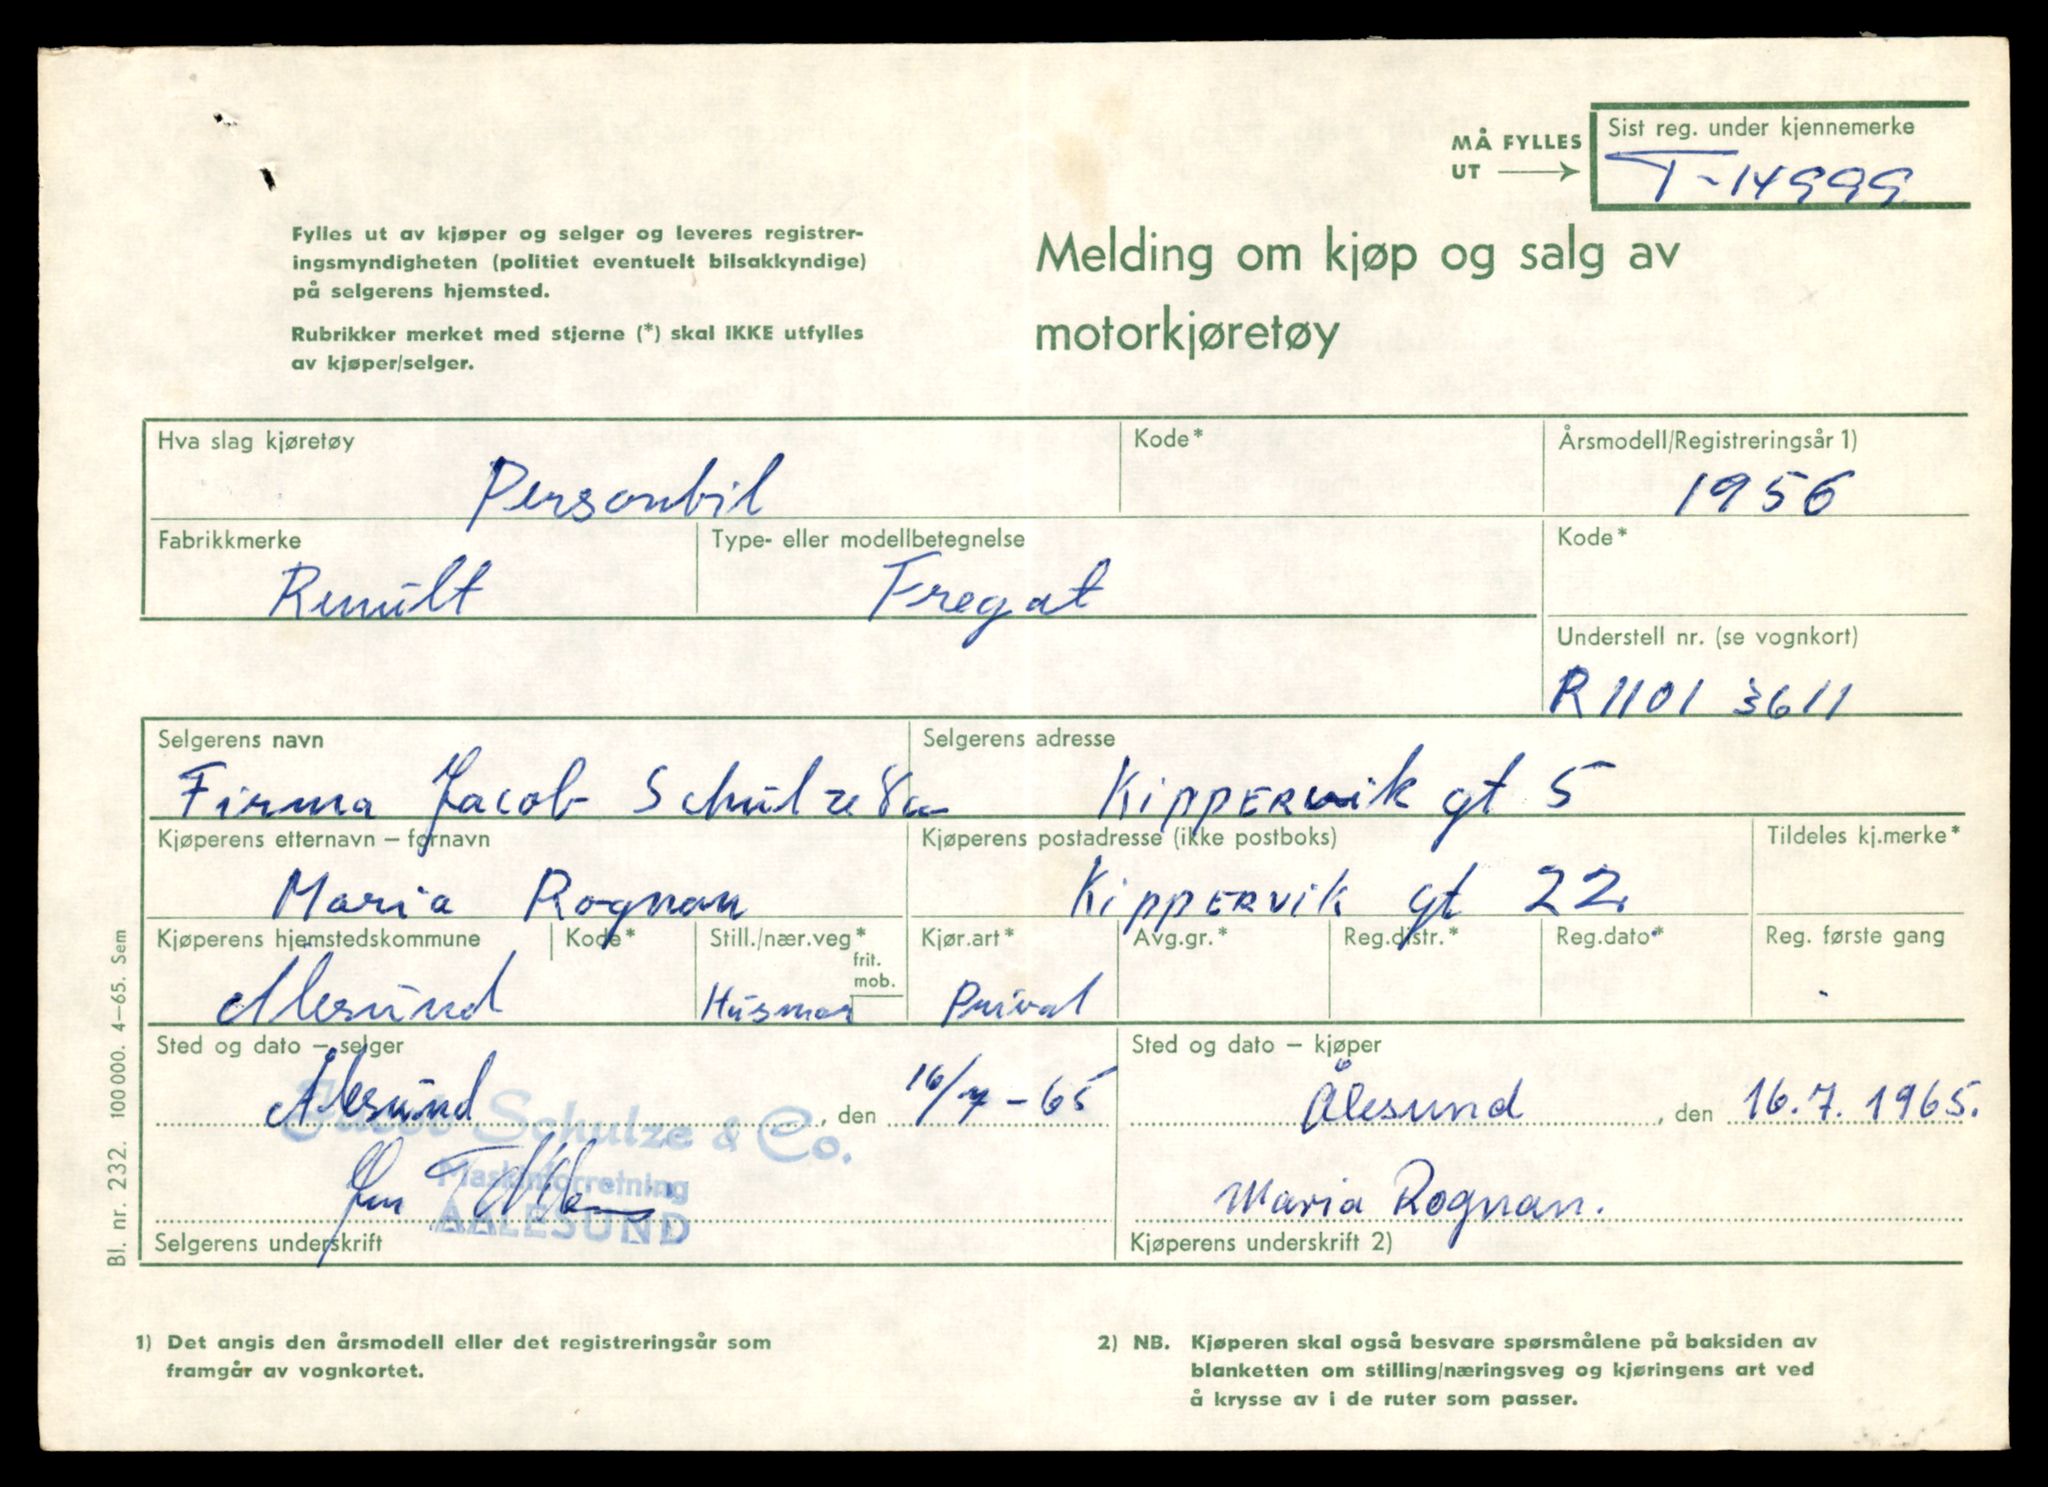 MÅ FYLLES UT → Sist reg. under kjennemerke
T-14999
Fylles ut av kjøper og selger og leveres registrer-
ingsmyndigheten (politiet eventuelt bilsakkyndige)
på selgerens hjemsted.
Rubrikker merket med stjerne (*) skal IKKE utfylles
av kjøper/selger.
Melding om kjøp og salg av
motorkjøretøy
Hva slag kjøretøy Kode* Årsmodell/Registreringsår 1)
Personbil 1956
Fabrikkmerke Type- eller modellbetegnelse Kode*
Renult Fregat
Understell nr. (se vognkort)
R 1101 3611
Selgerens navn Selgerens adresse
Firma Jacob Schulze & Co Kippervik gt 5
Kjøperens etternavn – fornavn Kjøperens postadresse (ikke postboks) Tildeles kj.merke*
Maria Rognan Kippervik gt 22.
Kjøperens hjemstedskommune Kode* Still./nær.veg* frit. mob. Kjør.art* Avg.gr.* Reg.distr.* Reg.dato* Reg. første gang
Ålesund Husmor Privat
Sted og dato – selger Sted og dato – kjøper
Ålesund, den 16/7-65 Ålesund, den 16.7.1965.
Jacob Schulze & Co.
Maskinforretning
AALESUND
Maria Rognan.
Selgerens underskrift Kjøperens underskrift 2)
Bl. nr. 232. 100 000. 4–65. Sem
1) Det angis den årsmodell eller det registreringsår som
framgår av vognkortet.
2) NB. Kjøperen skal også besvare spørsmålene på baksiden av
blanketten om stilling/næringsveg og kjøringens art ved
å krysse av i de ruter som passer.